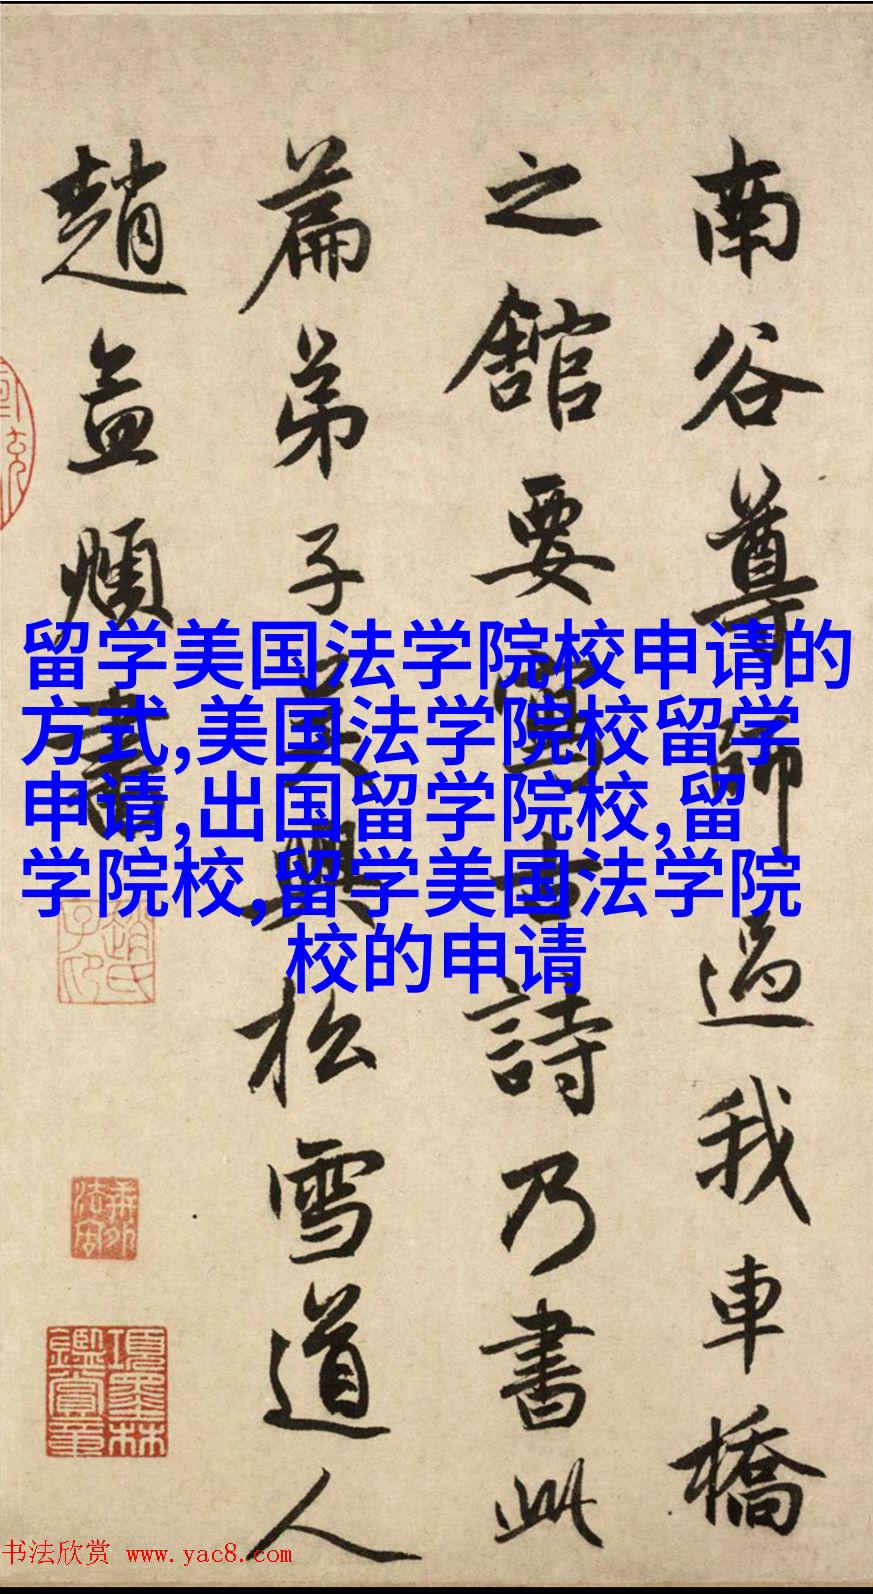 南谷尊師過我車橋
之館要寫古詩乃書此
篇弟子吳興松雪道人
趙孟頫書
留学美国法学院校申请的
方式,美国法学院校留学
申请,出国留学院校,留
学院校,留学美国法学院
校的申请
趙氏子印
項墨林鑑賞章
书法欣赏 www.yac8.com